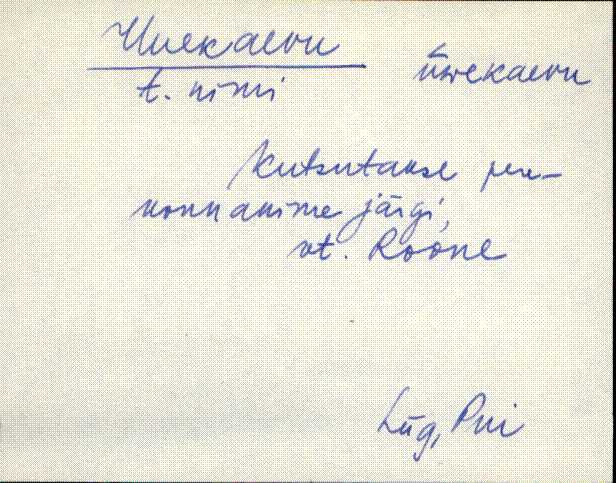 Uuekaevu
t. nimi
ùwekaevu
Kutsutakse pere-
konnanime järgi,
vt. Roone
Lüg, Pui